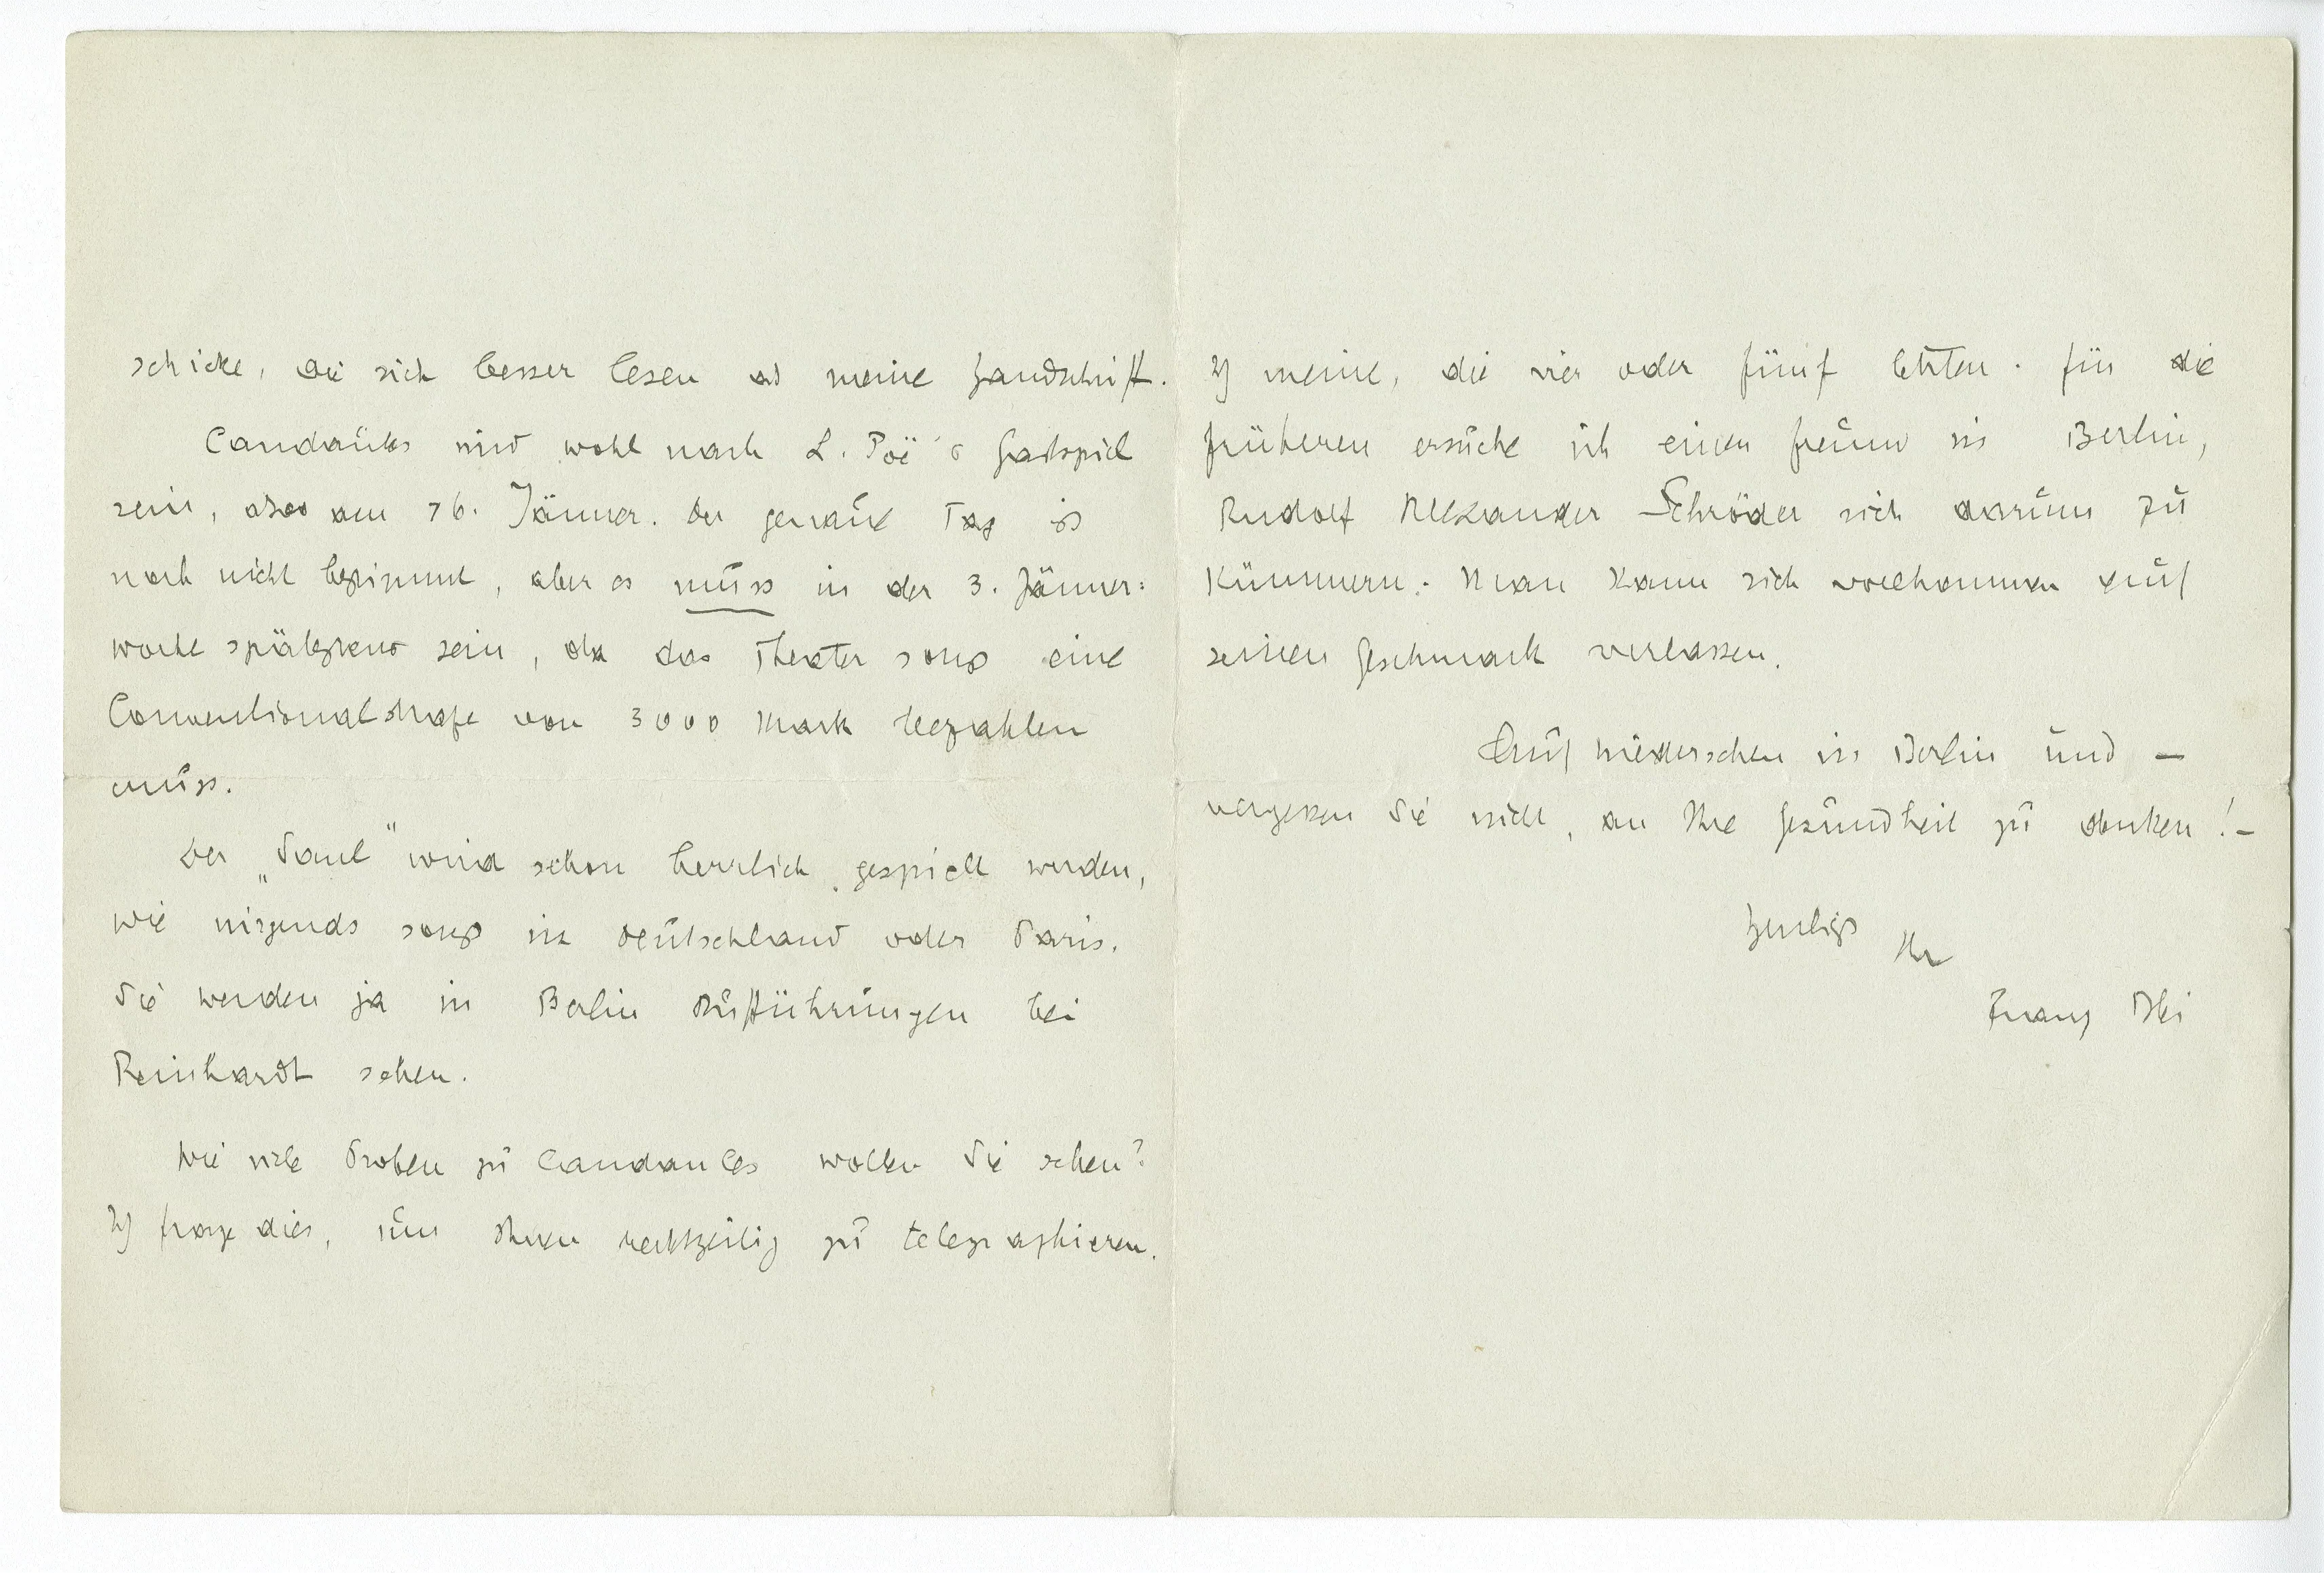 schicke, die sich besser lesen als meine Handschrift.
Candaules wird wohl nach L. Poë's Gastspiel
sein, also am 16. Jänner. Der genaue Tag ist
noch nicht bestimmt, aber es muss in der 3. Jänner:
woche spätestens sein, da das Theater sonst eine
Conventionalstrafe von 3000 Mark bezahlen
muss.
Der „Saul" wird schon herrlich gespielt werden,
wie nirgends sonst in Deutschland oder Paris.
Sie werden ja in Berlin Aufführungen bei
Reinhardt sehen.
Wie viele Proben zu Candaules wollen Sie sehen?
Ich frage dies, um Ihnen rechtzeitig zu telegraphieren.
Ich meine, die vier oder fünf letzten. Für die
früheren ersuche ich einen Freund in Berlin,
Rudolf Alexander Schröder sich darum zu
kümmern. Man kann sich vollkommen auf
seinen Geschmack verlassen.
Auf Wiedersehen in Berlin und —
vergessen Sie nicht, an Ihre Gesundheit zu denken! —
Herzlichst Ihr
Franz Blei